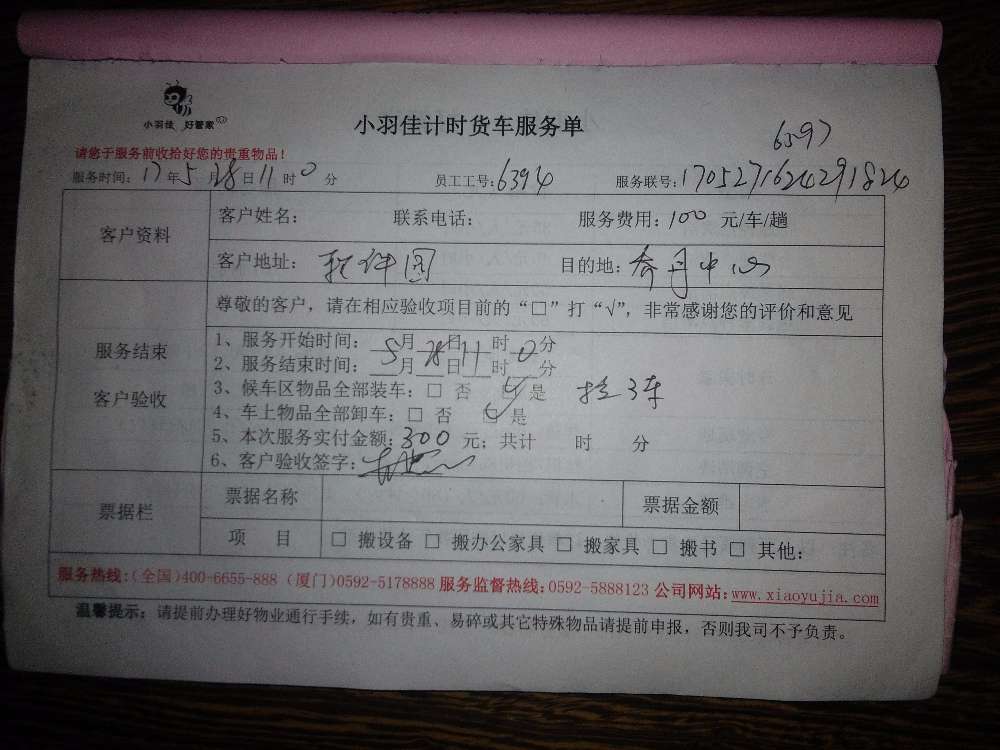 小羽佳 好管家
小羽佳计时货车服务单
6597
请您于服务前收拾好您的贵重物品!
服务时间: 17年5月28日11时0分 员工工号: 6394 服务联号: 1705271624291824
客户资料
客户姓名: 联系电话: 服务费用: 100 元/车/趟
客户地址: 软件园 目的地: 乔丹中心
服务结束
客户验收
尊敬的客户，请在相应验收项目前的“□”打“√”，非常感谢您的评价和意见
1、服务开始时间: 5月28日11时0分
2、服务结束时间: 月 日 时 分
3、候车区物品全部装车: □ 否 ☑ 是 3车
4、车上物品全部卸车: □ 否 ☑ 是
5、本次服务实付金额: 300 元; 共计 时 分
6、客户验收签字:
票据栏
票据名称 票据金额
项 目 □ 搬设备 □ 搬办公家具 □ 搬家具 □ 搬书 □ 其他:
服务热线:(全国)400-6655-888 (厦门)0592-5178888 服务监督热线: 0592-5888123 公司网站: www.xiaoyujia.com
温馨提示: 请提前办理好物业通行手续，如有贵重、易碎或其它特殊物品请提前申报，否则我司不予负责。